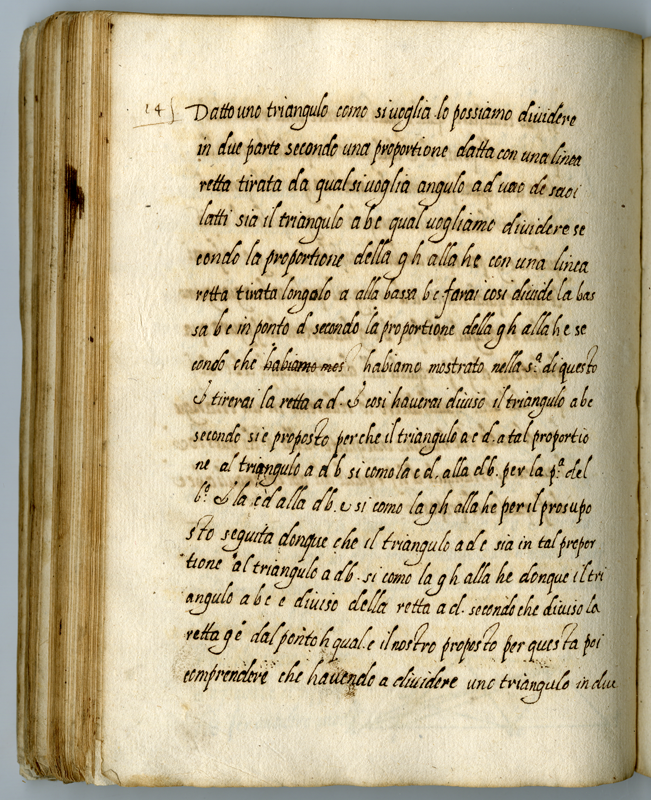 14
Datto uno triangulo como si voglia lo possiamo dividere
in due parte secondo una proportione datta con una linea
retta tirata da qual si voglia angulo ad uno de suoi
latti sia il triangulo abc qual vogliamo dividere se
condo la proportione della gh alla he con una linea
retta tirata longolo a alla bassa bc farai cosi divide la bas
sa bc in ponto d secondo la proportione della gh alla he se
condo che habiamo mos habiamo mostrato nella s.ª di questo
& tirerai la retta ad. & cosi haverai diviso il triangulo abc
secondo si è proposto perche il triangulo acd. a tal proportio
ne al triangulo adb si como la cd. alla db. per la p.ª del
6.º & la cd alla db. e si como la gh alla he per il prosupo
sto seguita donque che il triangulo adc sia in tal propor
tione al triangulo adb. si como la gh alla he donque il tri
angulo abc e diviso della retta ad. secondo che diviso la
retta ge dal ponto h qual. e il nostro proposto per questa poi
comprendere che havendo a dividere uno triangulo in due